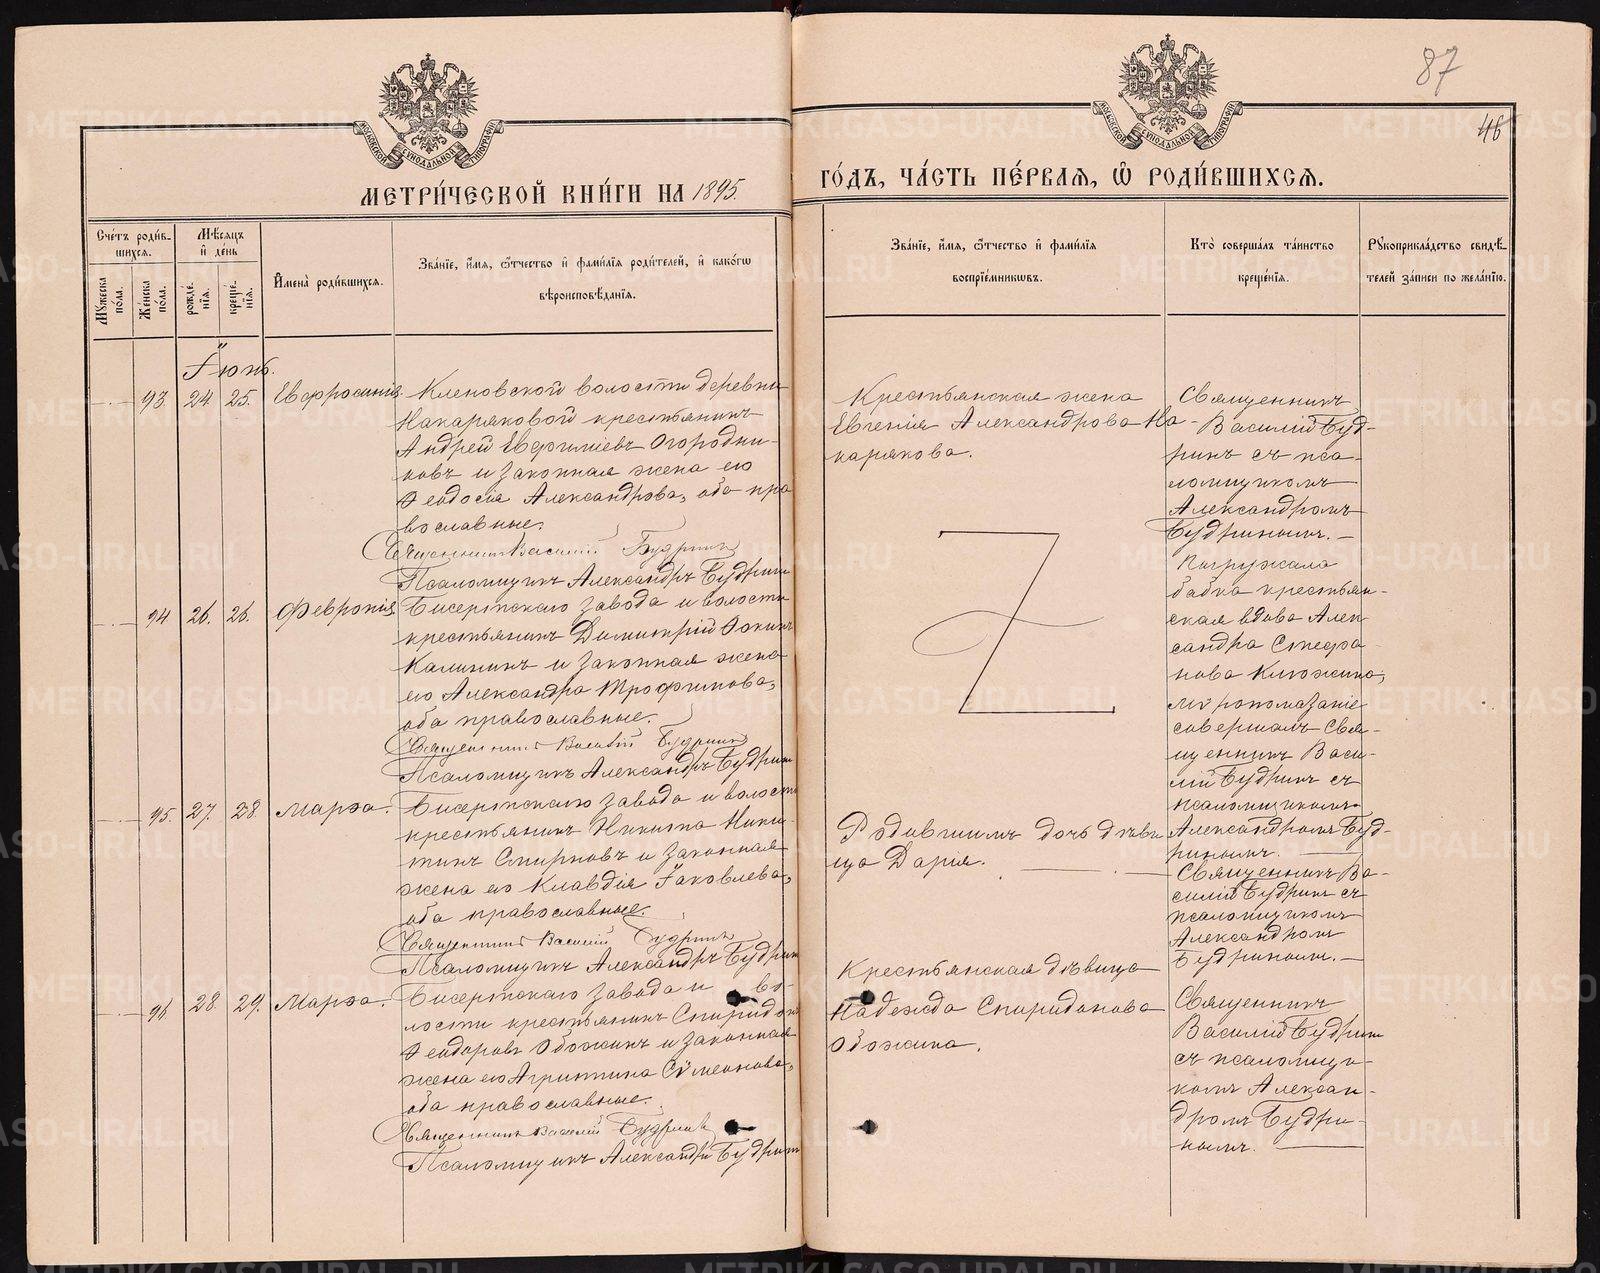 87
46
МОСКОВСКОЙ СУНОДАЛЬНОЙ ТИПОГРАФІИ
МОСКОВСКОЙ СУНОДАЛЬНОЙ ТИПОГРАФІИ
МЕТРИ́ЧЕСКОЙ КНИ́ГИ НА 1895.
ГО́ДЪ, ЧА́СТЬ ПЕ́РВАЯ, Ѡ҆ РОДИ́ВШИХСЯ.
Сче́тъ роди́в-
шихся.
Мѣ́сяцъ
и҆ де́нь
Му́жеска по́ла.
Же́нска по́ла.
рожде́нїя.
креще́нїя.
И҆мена̀ роди́вшихся.
Зва́нїе, и҆́мя, ѻ҆́тчество и҆ фами́лїя роди́телей, и҆ како́гѡ
вѣроисповѣ́данїя.
Зва́нїе, и҆́мя, ѻ҆́тчество и҆ фами́лїя
воспрїе́мниковъ.
Кто̀ соверша́лъ та́инство
креще́нїя.
Рꙋкоприкла́дство свидѣ́-
телей за́писи по жела́нїю.
Іюнь.
93 24 25. Евфросинія.
Кленовской волости деревни
Накаряковой крестьянинъ
Андрей Евфиміевъ Огородни-
ковъ и законная жена его
Ѳеодосія Александрова, оба пра
вославные.
Священникъ Василій Будринъ
Псаломщикъ Александръ Будринъ
Крестьянская жена
Евгенія Александрова На-
карякова.
Священникъ
Василій Буд-
ринъ съ пса-
ломщикомъ
Александромъ
Будринымъ. —
94 26. 26. Февронія
Бисертскаго завода и волости
крестьянинъ Димитрій Фокинъ
Калининъ и законная жена
его Александра Трофимова,
оба православные.
Священникъ Василій Будринъ
Псаломщикъ Александръ Будринъ
Погружала
бабка крестьян-
ская вдова Алек
сандра Стефа-
нова Клюжина,
мѵропомазаніе
совершалъ Свя-
щенникъ Васи-
лій Будринъ съ
псаломщикомъ
Александромъ Буд-
ринымъ. —
95. 27. 28. Марѳа.
Бисертскаго завода и волости
крестьянинъ Никита Ники-
тинъ Смирновъ и законная
жена его Клавдія Іаковлева,
оба православные.
Священникъ Василій Будринъ
Псаломщикъ Александръ Будринъ
Родившимъ дочь дѣви
ца Дарія.
Священникъ Ва-
силій Будринъ съ
псаломщикомъ
Александромъ
Будринымъ. —
96. 28. 29. Марѳа.
Бисертскаго завода и во-
лости крестьянинъ Спиридонъ
Ѳеодоровъ Обожинъ и законная
жена его Агриппина Сѵмеонова,
оба православные.
Священникъ Василій Будринъ
Псаломщикъ Александръ Будринъ
Крестьянская дѣвица
Надежда Спиридонова
Обожина.
Священникъ
Василій Будринъ
съ псаломщи-
комъ Алексан-
дромъ Будри-
нымъ.
METRIKI.GASO-URAL.RU